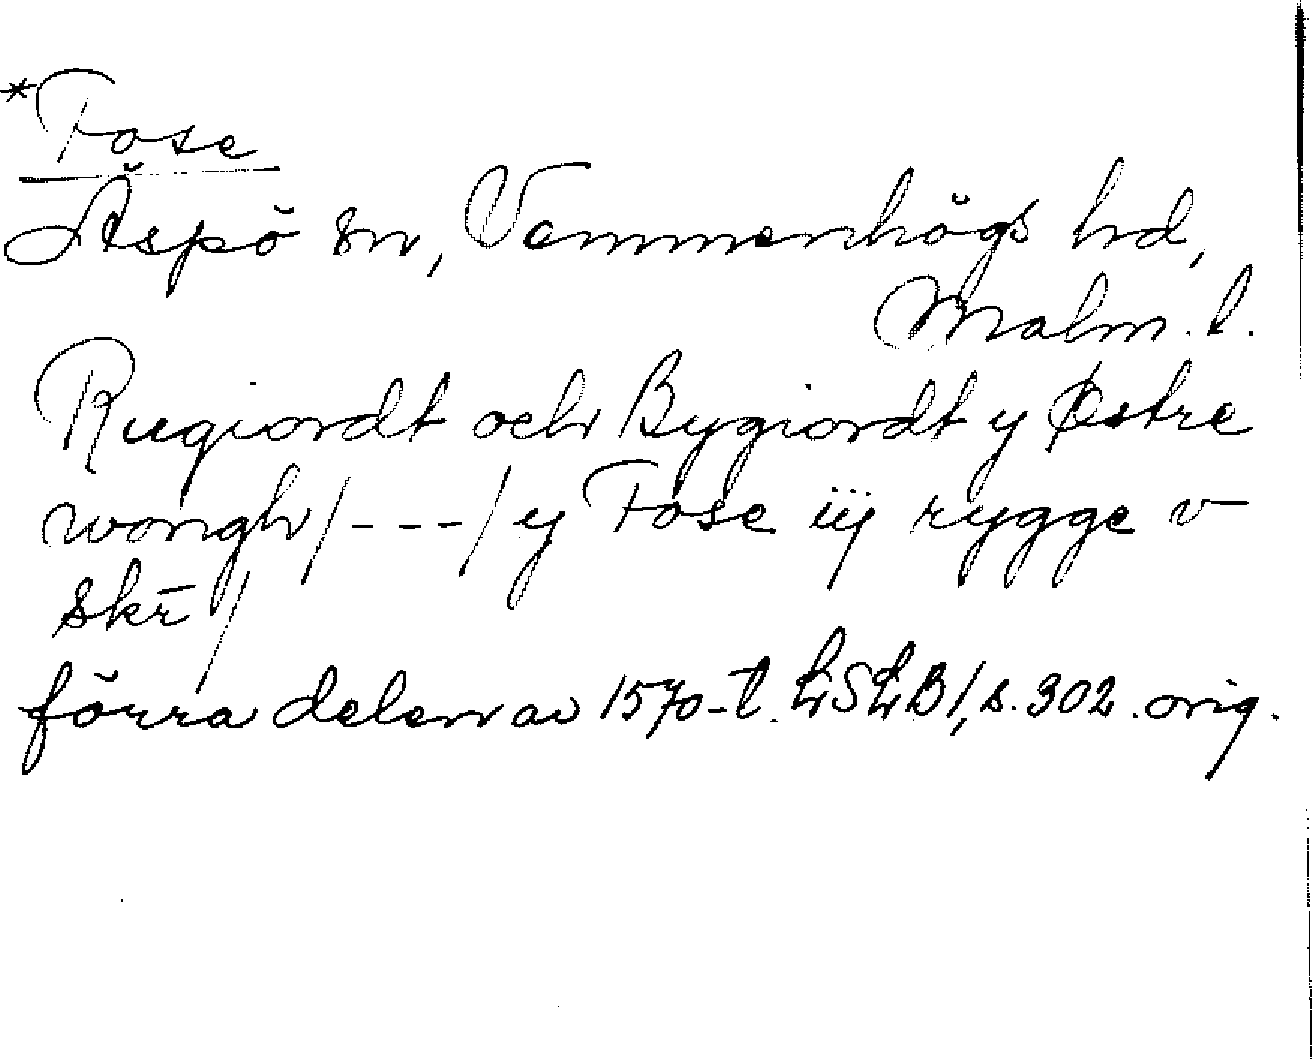 *Fose
Äspö sn, Vemmenhögs hd,
Malm. l.
Rugiordt och Bygiordt y Østre
wongh /---/ y Fose iij rygge v
skr̄ /
förra delen av 1570-t. LSLB 1, s. 302. orig.